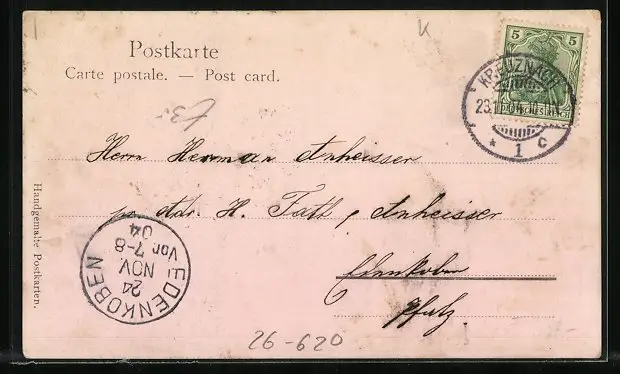 Postkarte
Carte postale. — Post card.
K
5 5
KREUZNACH
23.11.04.10-11
* 1 c
Herrn Herman Anheisser
pr. Adr. H. Fath, Anheisser
Edenkoben
Pfalz.
EDENKOBEN
24
NOV.
Vor. 7-8
04
Handgemalte Postkarten.
26-620